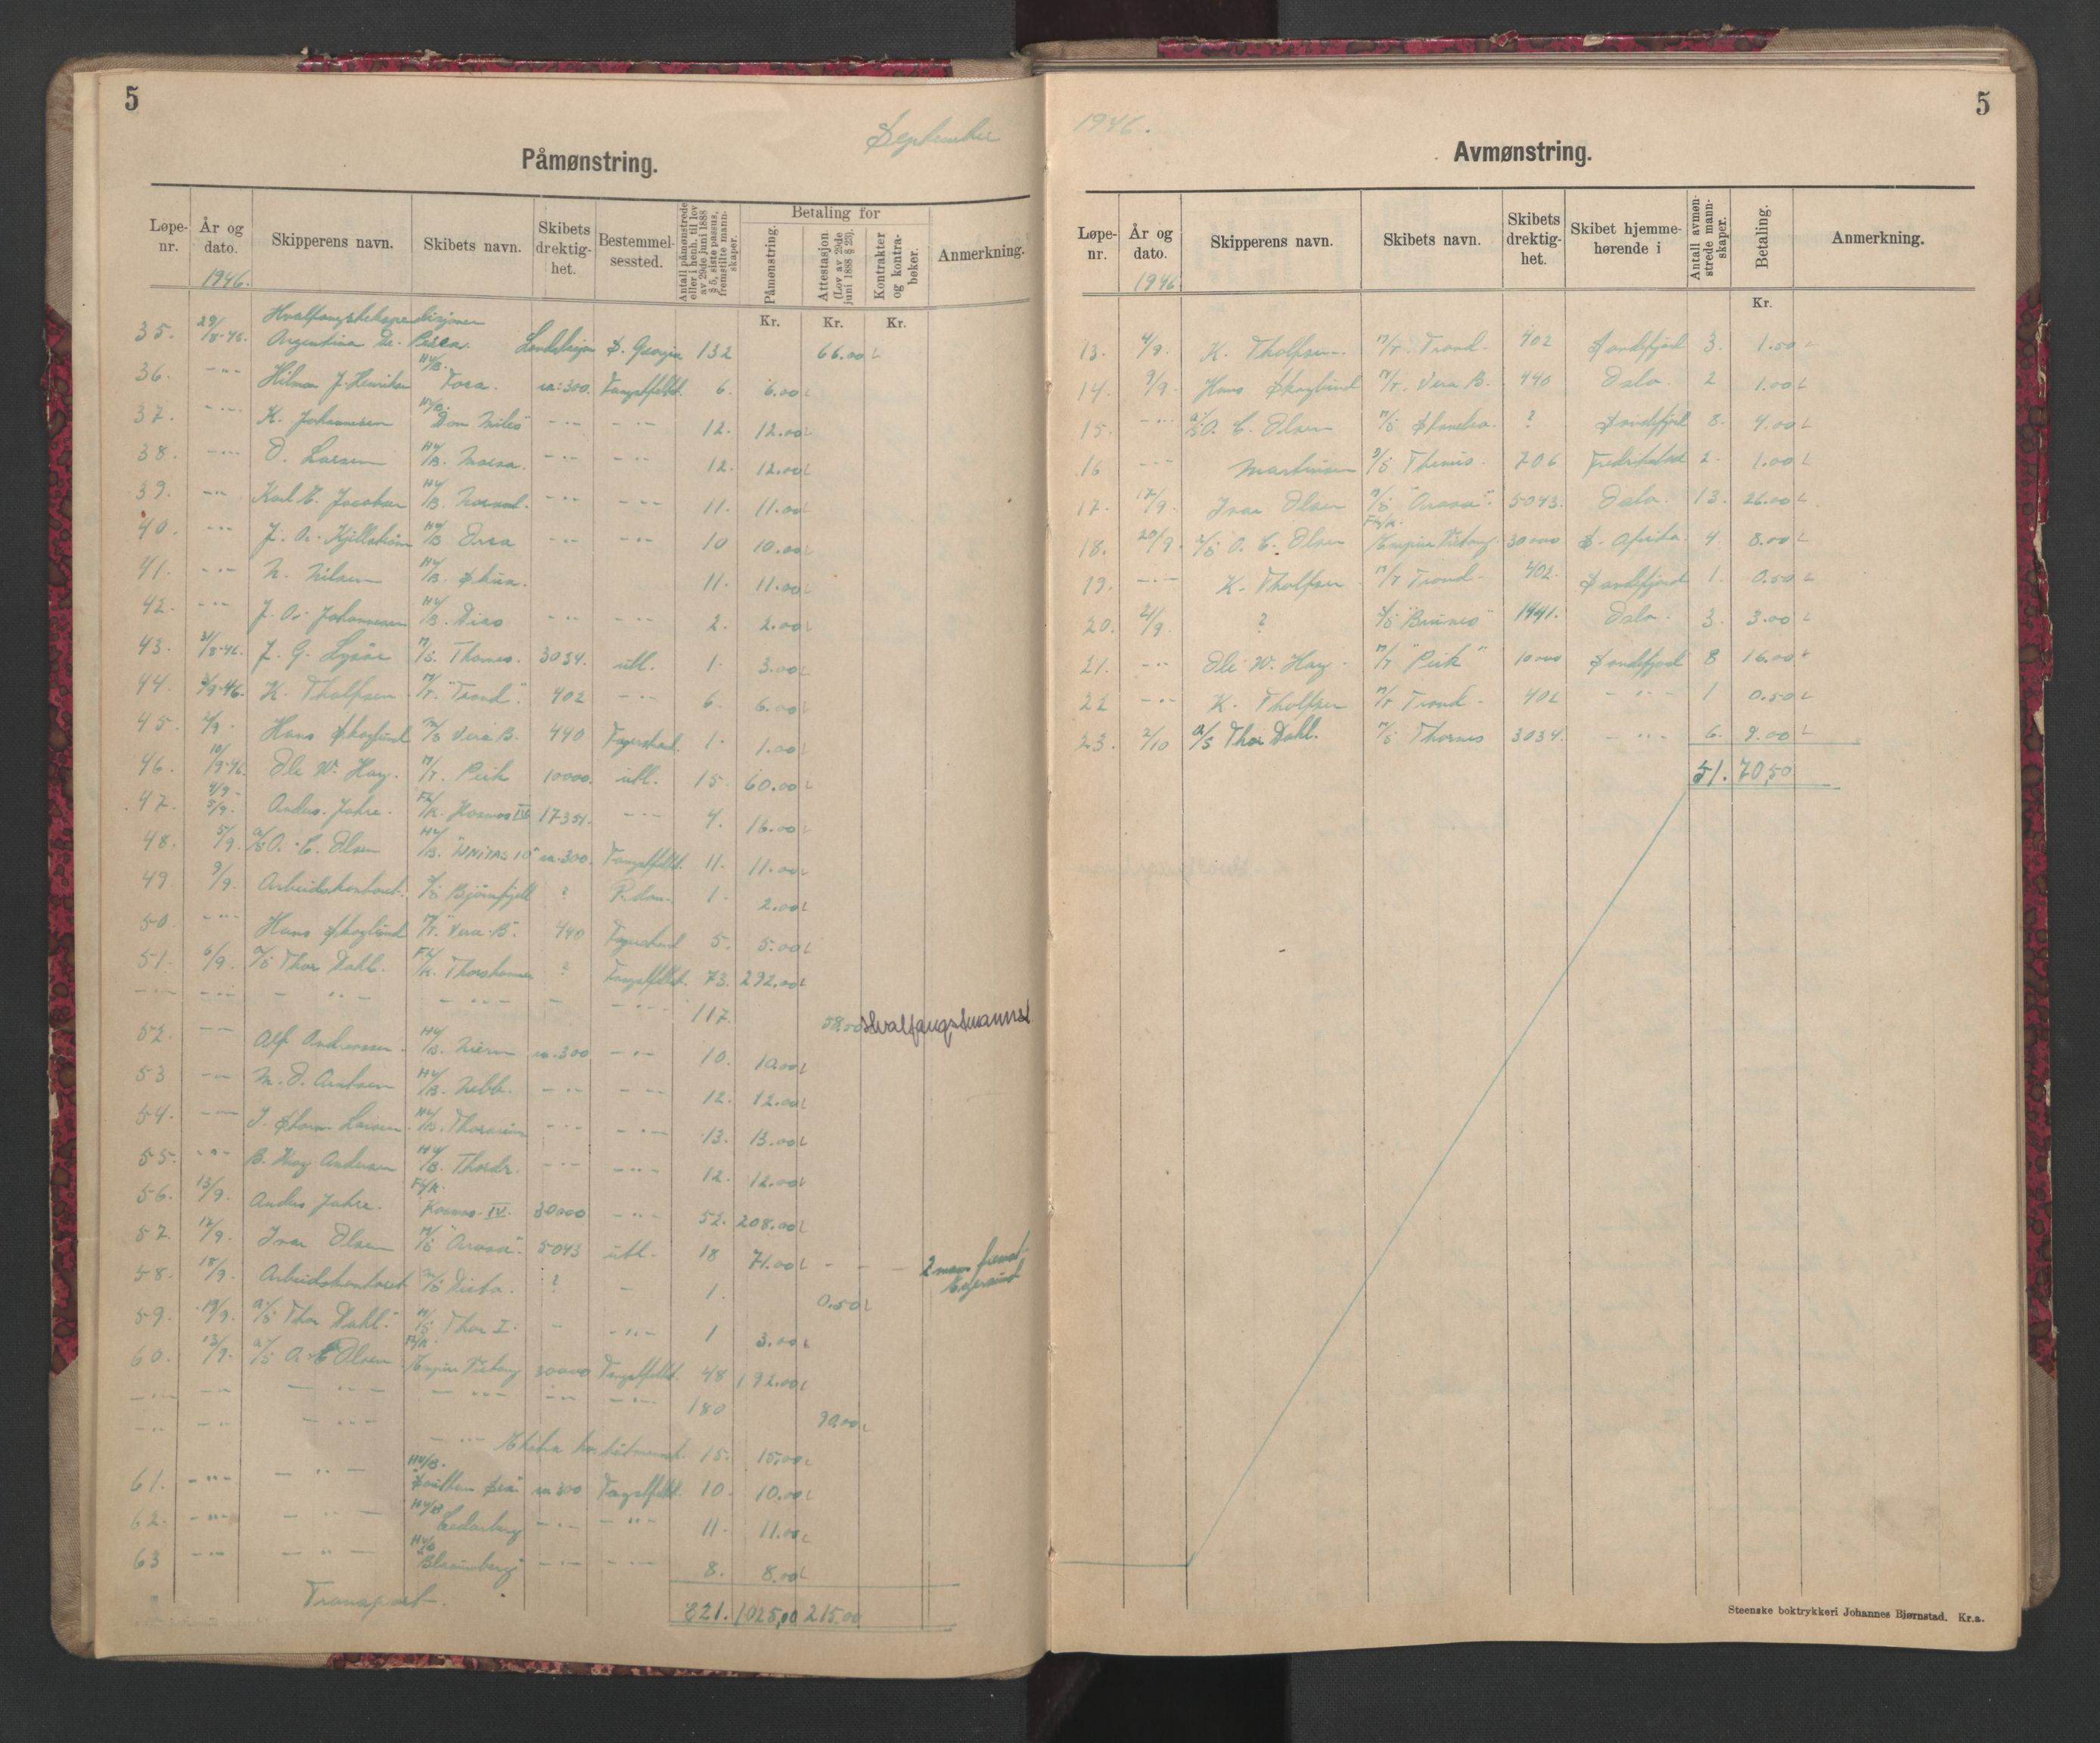 5
September
Påmønstring.
Løpe-nr. | År og dato. | Skipperens navn. | Skibets navn. | Skibets drektig-het. | Bestemmel-sessted. | Antall påmønstrede eller i henh. til lov av 29de juni 1888 § 5, siste passus, fremstilte mann-skaper. | Betaling for | Påmønstring. | Attestasjon (Lov av 29de juni 1888 § 26). | Kontrakter og kontra-bøker. | Anmerkning.
1946.
Kr. Kr. Kr.
Hvalfangstekspedisjonen
35. 29/8-46. Argentina De. Pesca. Landstasjon S. Georgia 132 66.00
36. -"- Hilmar J. Henriksen Hv/B. Fora. ca. 300. Fangstfeltet. 6. 6.00
37. -"- K. Johannesen Hv/B. Don Miles -"- -"- 12. 12.00
38. -"- O. Larsen Hv/B. Morsa. -"- -"- 12. 12.00
39. -"- Karl E. Jacobsen Hv/B. -"- -"- 11. 11.00
40. -"- J. A. Kjellstrøm Hv/B. Orca -"- -"- 10 10.00
41. -"- N. Nilsen Hv/B. 11. 11.00
42. -"- J. A. Johannesen Hv/B. Dias -"- -"- 2. 2.00
43. 31/8-46. J. G. M/S. Thornes. 3034. utl. 1. 3.00
44. /9-46. K. Tholfsen M/T. "Trond" 402 -"- 6. 6.00
45. 4/9. Hans Skoglund M/S Vera B. 440 Fagerstrand. 1. 1.00
46. 10/9-46. Ole W. Hay. M/T. Peik 10000. utl. 15. 60.00
47. 4/9- 5/9. Anders. Jahre. Fl/K. Kosmos IV 17351. -"- 4. 16.00
48. 5/9. A/S O. C. Olsen Hv/B. "UNITAS 10" ca. 300. Fangstfeltet. 11. 11.00
49. 9/9. Arbeidskontoret. Bjørnfjell ? 1. 2.00
50. -"- Hans Skoglund M/T. "Vera B". 440 Fagerstrand 5. 5.00
51. 6/9. A/S Thor Dahl. Fl/K. Thorshammer ? Fangstfeltet. 73. 292.00
-"- -"- -"- -"- - -"- 117. 58.50 Hvalfangstmannsk.
52. -"- Alf Andreassen Hv/B. ca. 300 -"- 10. 10.00
53 -"- M. O. Arntsen Hv/B. Nebb. -"- -"- 12. 12.00
54. -"- Larsen. Hv/B. -"- -"- 13. 13.00
55. -"- B. Hay Andersen Hv/B. Thordr. -"- -"- 12. 12.00
56. 13/9. Anders Jahre. Fl/K. Kosmos IV. 30000 -"- 52. 208.00
57. 12/9. Ivar Olsen M/S "Arosa". 5043 utl. 18 71.00 - - - 2 mann
58. 18/9. Arbeidskontoret M/S ? - 1. 0.50
59. 19/9. A/S Thor Dahl. M/S Thor I. - -"- 1 3.00
60. 13/9. A/S O. C. Olsen Fl/K. Empire Victory 30000 Fangstfeltet. 48 192.00
-"- -"- -"- -"- -"- -"- 180 90.00
-"- -"- -"- -"- Ekstra 15. 15.00
61. -"- -"- Hv/B. "Southern Sea" ca 300 Fangstfeltet. 10. 10.00
62. -"- -"- Hv/B Cedarberg -"- -"- 11. 11.00
63 -"- -"- Hv/B "Blaauwberg" -"- -"- 8. 8.00
Transport. 821. 1025,00 215.00
5
1946.
Avmønstring.
Løpe-nr. | År og dato. | Skipperens navn. | Skibets navn. | Skibets drektig-het. | Skibet hjemme-hørende i | Antall avmøn-strede mann-skaper. | Betaling. | Anmerkning.
1946
Kr.
13. 4/9. K. Tholfsen. M/T. Trond. 402 Sandefjord 3. 1.50
14. 9/9. Hans Skoglund M/T. Vera B. 440 Oslo. 2 1.00
15. -"- A/S O. C. Olsen M/S ? Sandefjord 8. 4.00
16 -"- Martinsen D/S Themis. 706 Fredrikstad 2. 1.00
17. 17/9. Ivar Olsen M/S "Arosa". 5043. Oslo. 13. 26.00
18. 20/9. A/S O. C. Olsen Fl/K. Empire Victory 30000 S. Afrika 4. 8.00
19. -"- K. Tholfsen M/T Trond. 402. Sandefjord 1. 0.50
20. 21/9. ? "Brunes" 1441. Oslo. 3. 3.00
21. -"- Ole W. Hay. M/T "Peik" 10000 Sandefjord 8 16.00
22 -"- K. Tholfsen M/T Trond. 402 -"- 1 0.50
23. 2/10 A/S Thor Dahl. M/S Thornes 3034. -"- 6. 9.00
51. 70,50
Steenske boktrykkeri Johannes Bjørnstad. Kr.a.